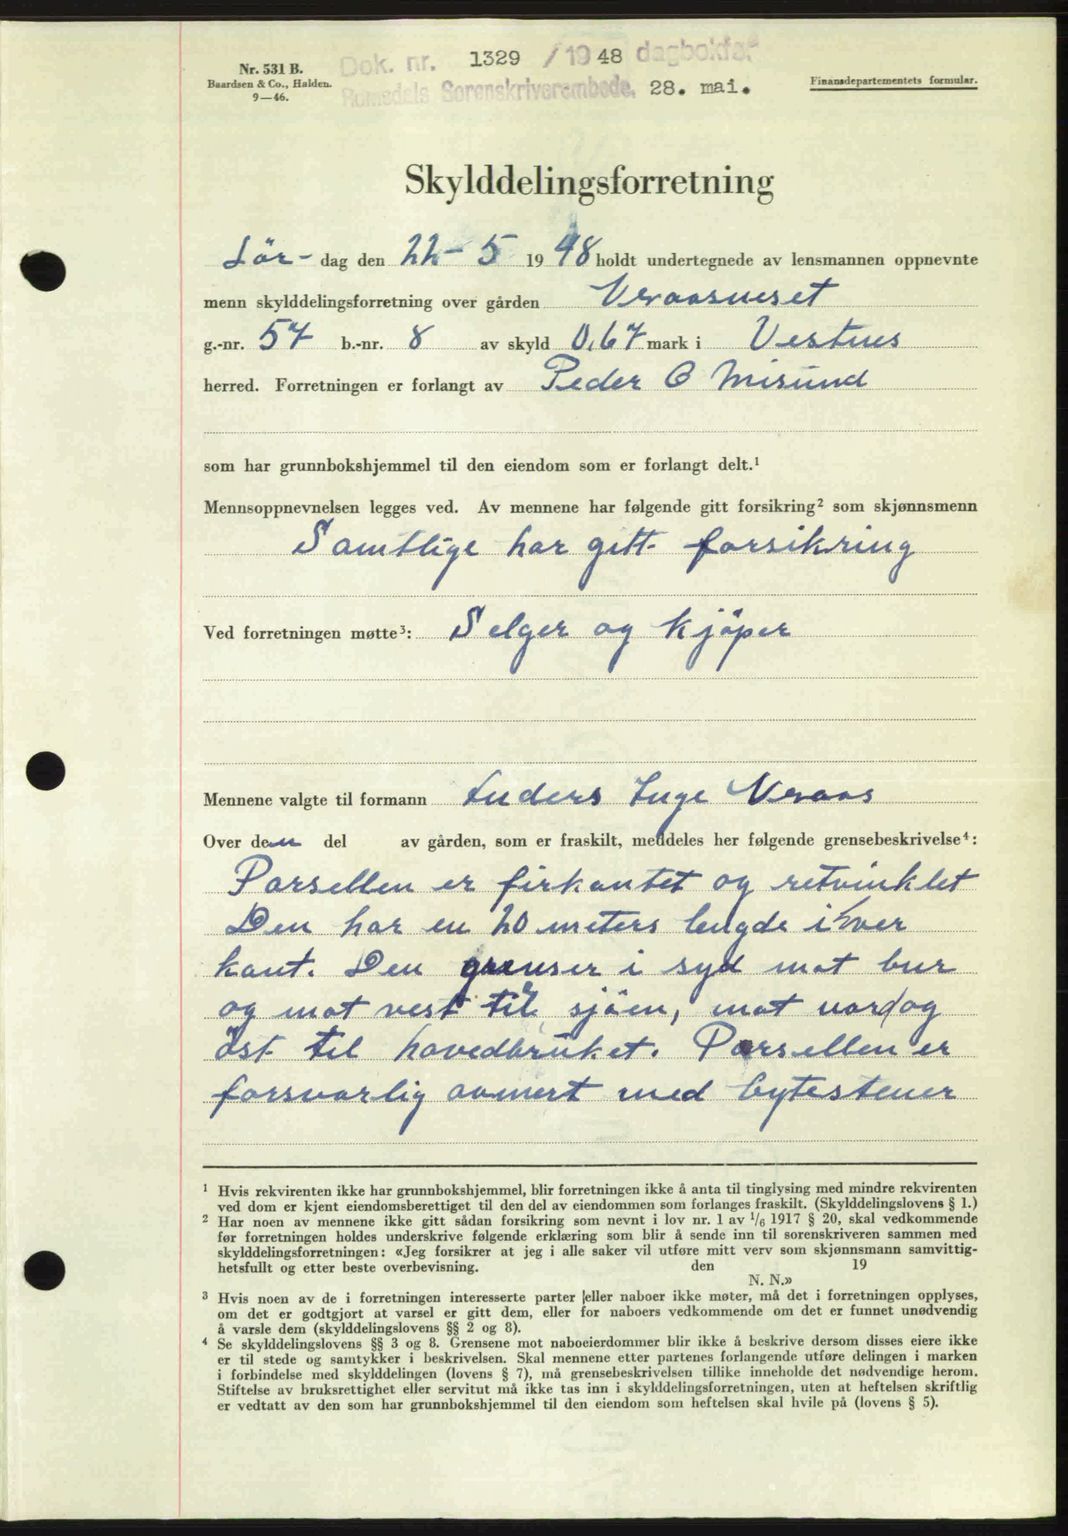 Nr. 531 B.
Baardsen & Co., Halden.
9—46.
Dok. nr. 1329 / 1948 dagbokfø.
Romsdals Sorenskriverembede. 28. mai.
Finansdepartementets formular.
Skylddelingsforretning
Lör- dag den 22-5 1948 holdt undertegnede av lensmannen oppnevnte
menn skylddelingsforretning over gården Vraasneset
g.-nr. 57 b.-nr. 8 av skyld 0,67 mark i Vestnes
herred. Forretningen er forlangt av Peder O Misund
som har grunnbokshjemmel til den eiendom som er forlangt delt.¹
Mennsoppnevnelsen legges ved. Av mennene har følgende gitt forsikring² som skjønnsmenn
Samtlige har gitt forsikring
Ved forretningen møtte³: Selger og kjöper
Mennene valgte til formann Anders Inge Vraas
Over den del av gården, som er fraskilt, meddeles her følgende grensebeskrivelse⁴:
Parsellen er firkantet og retvinklet
Den har en 20 meters lengde i hver
kant. Den grenser i syd mot bur
og mot vest til sjöen, mot nord og
öst til hovedbruket. Parsellen er
forsvarlig avmert med bytestener
¹ Hvis rekvirenten ikke har grunnbokshjemmel, blir forretningen ikke å anta til tinglysing med mindre rekvirenten
ved dom er kjent eiendomsberettiget til den del av eiendommen som forlanges fraskilt. (Skylddelingslovens § 1.)
² Har noen av mennene ikke gitt sådan forsikring som nevnt i lov nr. 1 av 1/6 1917 § 20, skal vedkommende
før forretningen holdes underskrive følgende erklæring som blir å sende inn til sorenskriveren sammen med
skylddelingsforretningen: «Jeg forsikrer at jeg i alle saker vil utføre mitt verv som skjønnsmann samvittig-
hetsfullt og etter beste overbevisning. den 19
N. N.»
³ Hvis noen av de i forretningen interesserte parter eller naboer ikke møter, må det i forretningen opplyses,
om det er godtgjort at varsel er gitt dem, eller for naboers vedkommende om det er funnet unødvendig
å varsle dem (skylddelingslovens §§ 2 og 8).
⁴ Se skylddelingslovens §§ 3 og 8. Grensene mot naboeierdommer blir ikke å beskrive dersom disses eiere ikke
er til stede og samtykker i beskrivelsen. Skal mennene etter partenes forlangende utføre delingen i marken
i forbindelse med skylddelingen (lovens § 7), må grensebeskrivelsen tillike inneholde det nødvendige herom.
Stiftelse av bruksrettighet eller servitut må ikke tas inn i skylddelingsforretningen, uten at heftelsen skriftlig
er vedtatt av den som har grunnbokshjemmel til den eiendom som heftelsen skal hvile på (lovens § 5).